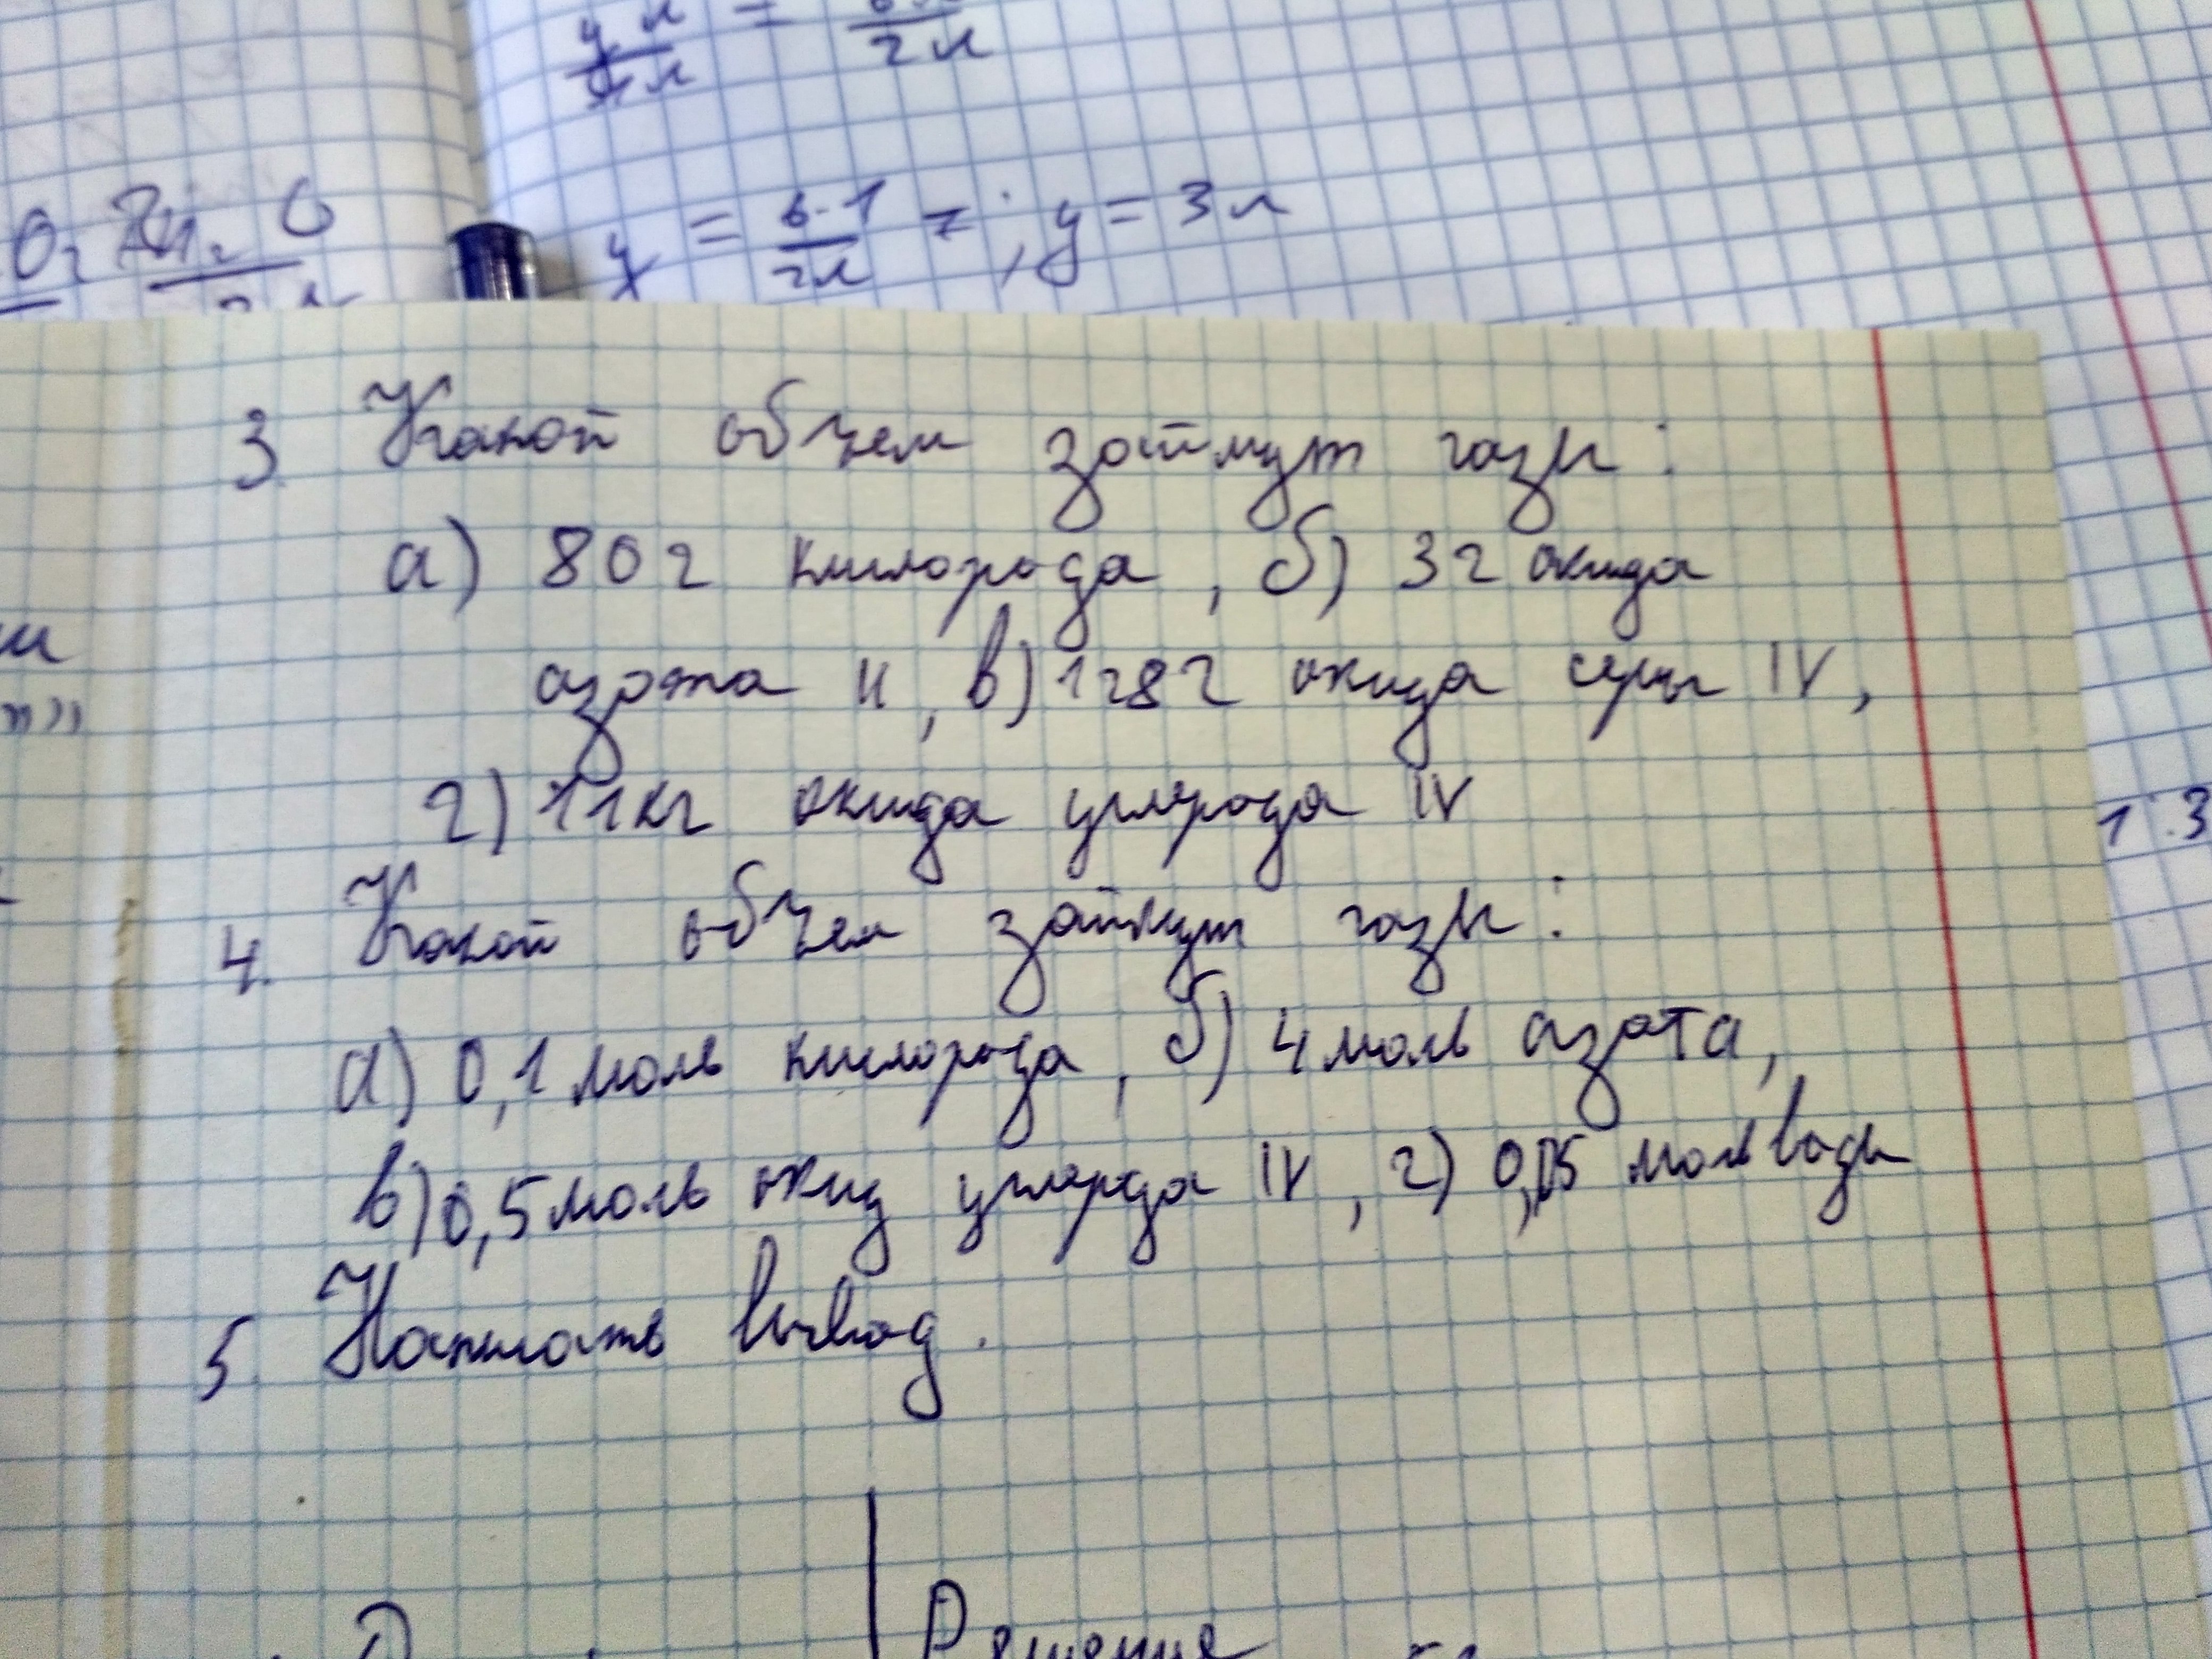 y = 6·1 / 2л = ; y = 3л
3. Какой объем займут газы:
а) 80г кислорода, б) 3г оксида
азота II, в) 128г оксида серы IV,
г) 11кг оксида углерода IV
4. Какой объем займут газы:
а) 0,1 моль кислорода, б) 4 моль азота,
в) 0,5 моль оксид углерода IV, г) моль воды
5. Написать вывод.
1:3
Решение